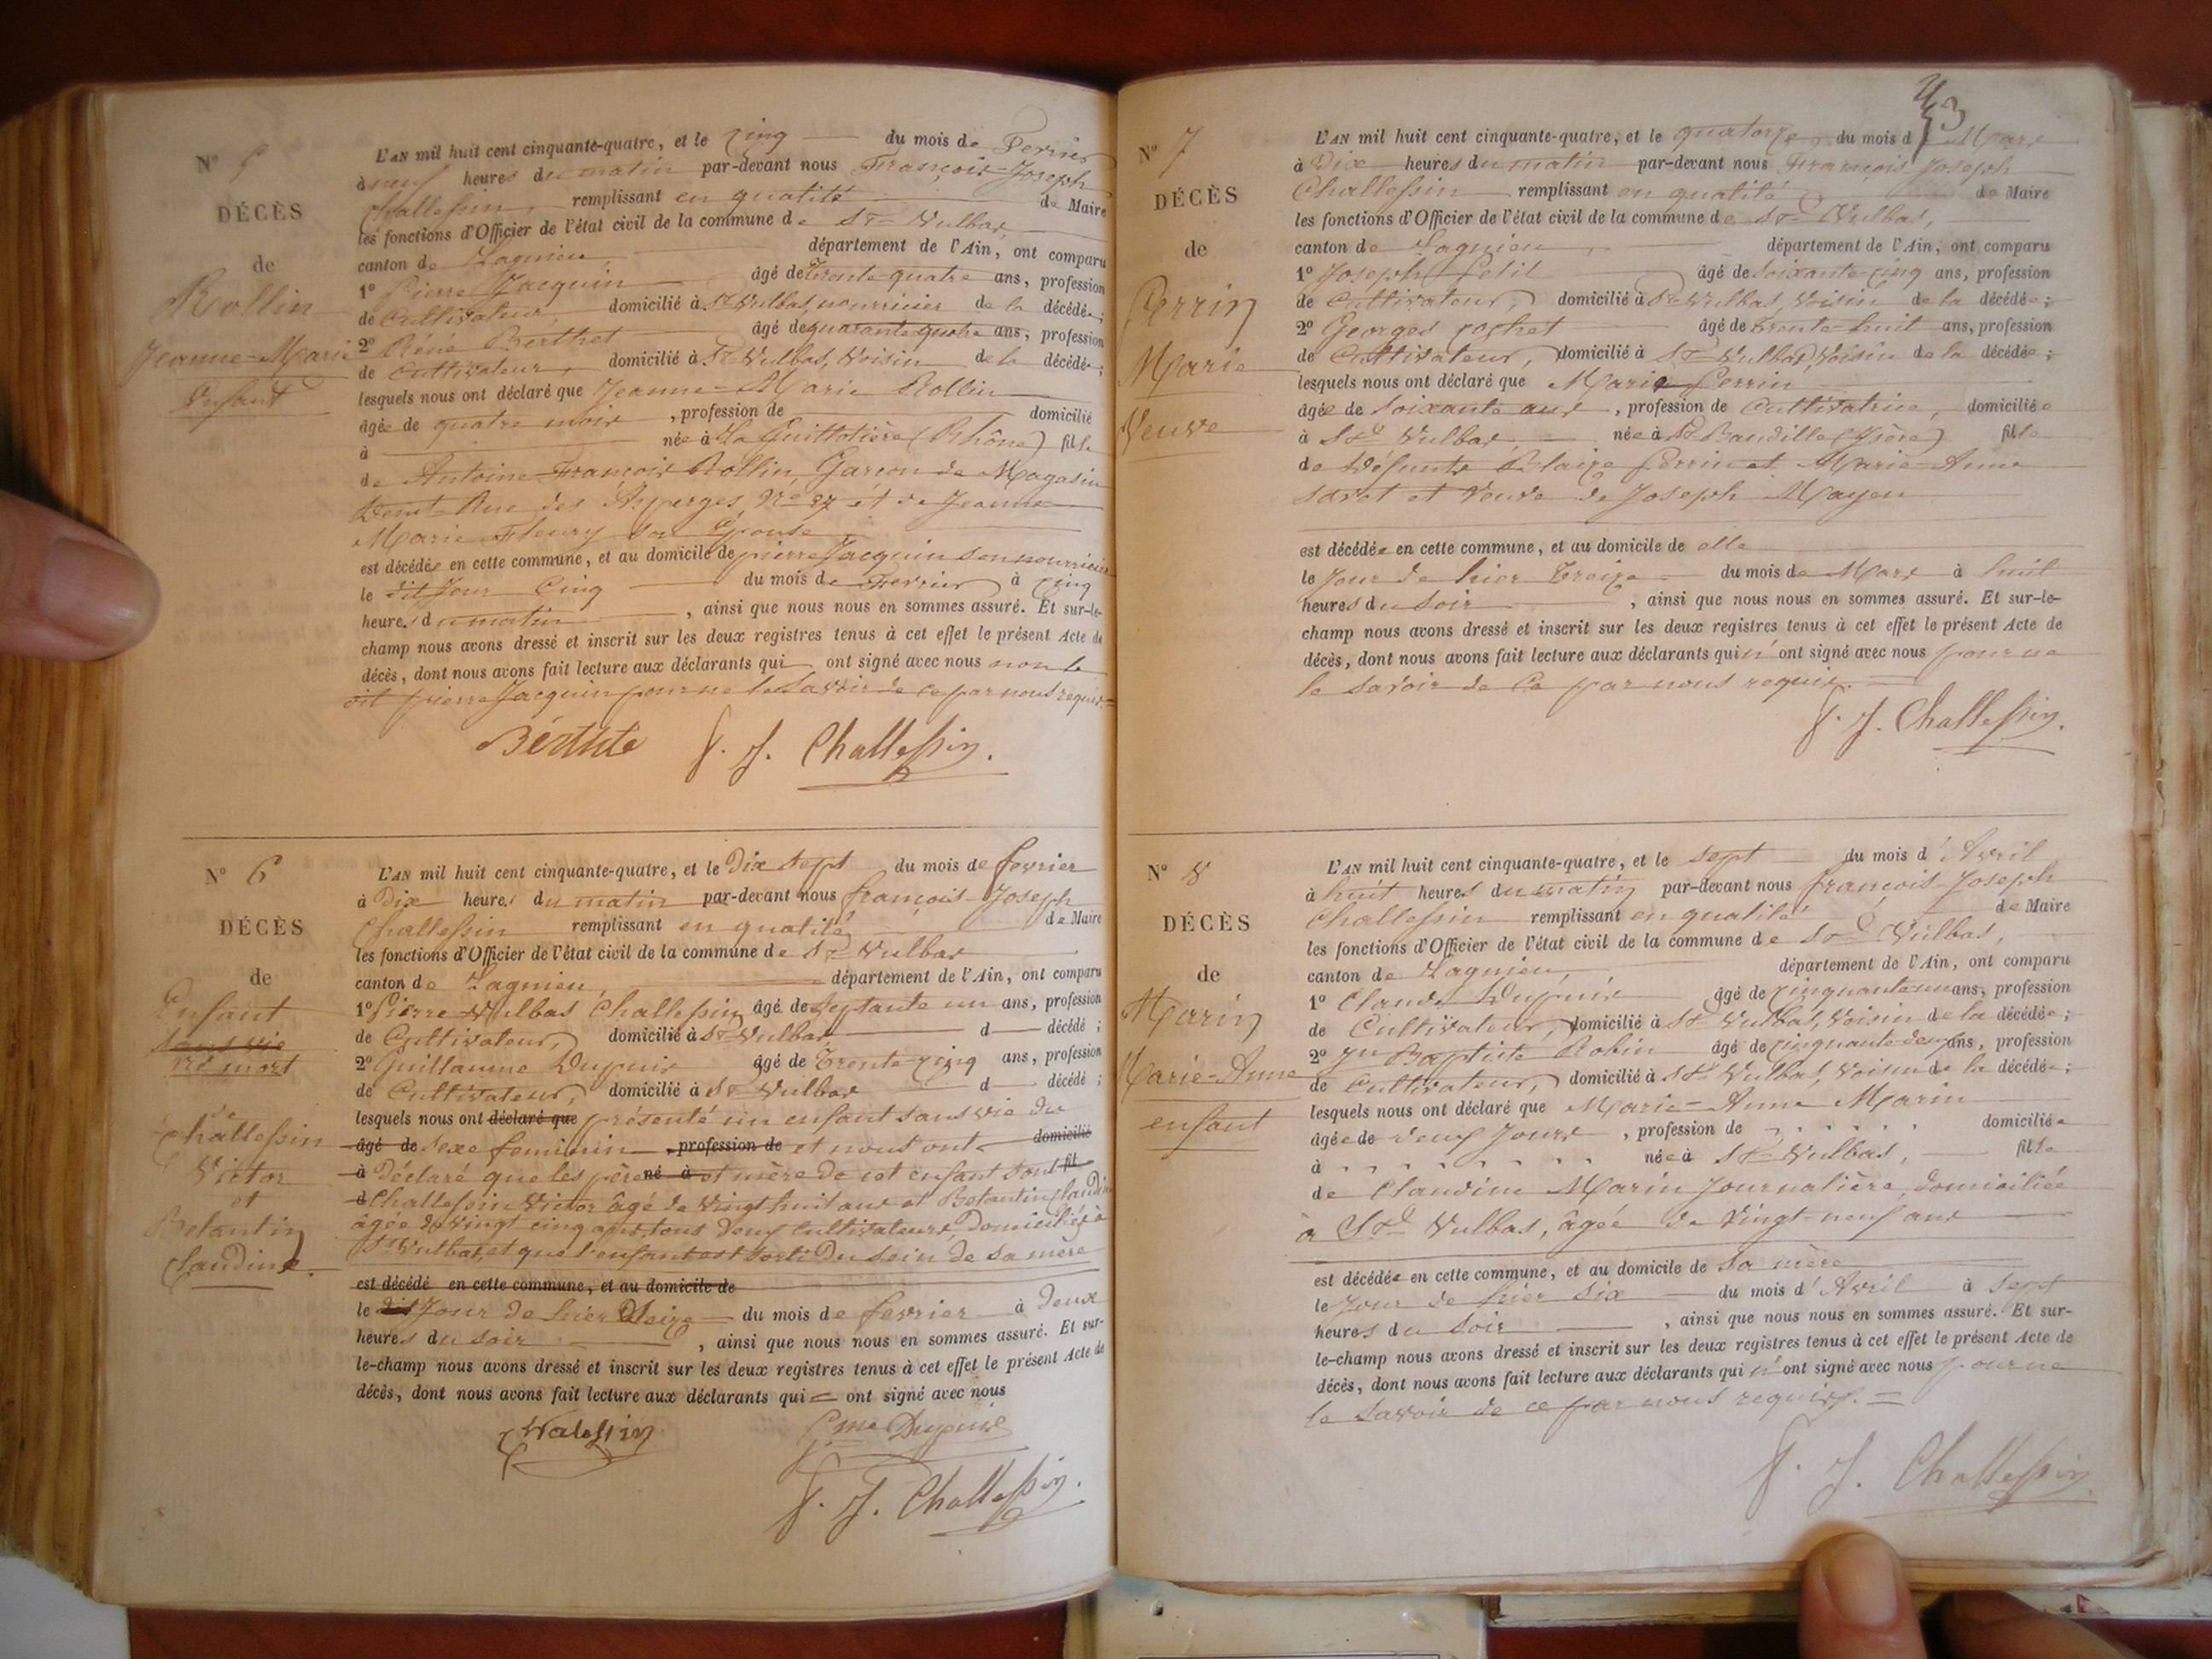 N° 5
DÉCÈS
de
Rollin
Jeanne-Marie
Enfant
L'AN mil huit cent cinquante-quatre, et le cinq du mois de Fevrier
à neuf heures du matin par-devant nous François-Joseph
Challessin, remplissant en qualité de Maire
les fonctions d'Officier de l'état civil de la commune de St Vulbas,
canton de Lagnieu, département de l'Ain, ont comparu
1° Pierre Jacquin âgé de Trente-quatre ans, profession
de Cultivateur, domicilié à St Vulbas, nourricier de la décédée;
2° Réné Berthet âgé de quarante-quatre ans, profession
de Cultivateur, domicilié à St Vulbas, Voisin de la décédée;
lesquels nous ont déclaré que Jeanne-Marie Rollin
âgée de quatre mois, profession de domicilié
à née à La Guillotière (Rhône) fille
de Antoine-François Rollin, Garçon de Magasin
Demt Rue des Asperges, N° 37 et de Jeanne
Marie Fleury son Épouse
est décédée en cette commune, et au domicile de pierre Jacquin son nourricier
le dit Jour Cinq du mois de Fevrier à cinq
heures du matin, ainsi que nous nous en sommes assuré. Et sur-le-
champ nous avons dressé et inscrit sur les deux registres tenus à cet effet le présent Acte de
décès, dont nous avons fait lecture aux déclarants qui ont signé avec nous non le
dit pierre Jacquin pour ne le Savoir de ce par nous requis.=
F. J. Challessin.
N° 6
DÉCÈS
de
Enfant
sans vie
né mort
de
Challessin
Victor
et
Betantin
Claudine.
L'AN mil huit cent cinquante-quatre, et le Dix sept du mois de fevrier
à Dix heures du matin par-devant nous françois-Joseph
Challessin remplissant en qualité de Maire
les fonctions d'Officier de l'état civil de la commune de St Vulbas
canton de Lagnieu, département de l'Ain, ont comparu
1° Pierre-Vulbas Challessin âgé de Septante un ans, profession
de Cultivateur, domicilié à St Vulbas d décédé;
2° Guillaume Dupuis âgé de Trente-cinq ans, profession
de Cultivateur, domicilié à St Vulbas d décédé;
lesquels nous ont déclaré que présenté un enfant sans vie du
âgé de sexe feminin, profession de et nous ont domicilié
à Déclaré que les père né à et mère de cet enfant sont fil
d Challessin Victor âgé de Vingt huit ans et Betantin Claudine
âgée de Vingt cinq ans, tous deux cultivateurs, Domiciliés à
St Vulbas, et que l'enfant est sorti Du sein de sa mère
est décédé en cette commune, et au domicile de
le dit Jour de hier Seize du mois de fevrier à Deux
heures du soir, ainsi que nous nous en sommes assuré. Et sur-
le-champ nous avons dressé et inscrit sur les deux registres tenus à cet effet le présent Acte de
décès, dont nous avons fait lecture aux déclarants qui = ont signé avec nous
Gme Dupuis
F. J. Challessin.
43
N° 7
DÉCÈS
de
Perrin
Marie
Veuve
L'AN mil huit cent cinquante-quatre, et le quatorze du mois d Mars
à Dix heures du matin par-devant nous François Joseph
Challessin remplissant en qualité de Maire
les fonctions d'Officier de l'état civil de la commune de St Vulbas,
canton de Lagnieu, département de l'Ain, ont comparu
1° Joseph Petit âgé de Soixante-cinq ans, profession
de Cultivateur, domicilié à St Vulbas, Voisin de la décédée;
2° Georges Cochet âgé de Trente-huit ans, profession
de Cultivateur, domicilié à St Vulbas, Voisin de la décédée;
lesquels nous ont déclaré que Marie Perrin
âgée de Soixante ans, profession de Cultivatrice, domiciliée
à St Vulbas, née à St Baudille (Isère) fille
de Défunts Blaize Perrin et Marie-Anne
et Veuve de Joseph Mayen
est décédée en cette commune, et au domicile de elle
le Jour de hier Treize du mois de Mars à huit
heures du Soir, ainsi que nous nous en sommes assuré. Et sur-le-
champ nous avons dressé et inscrit sur les deux registres tenus à cet effet le présent Acte de
décès, dont nous avons fait lecture aux déclarants qui n'ont signé avec nous pour ne
le Savoir de ce par nous requis.
F. J. Challessin.
N° 8
DÉCÈS
de
Marin
Marie-Anne
enfant
L'AN mil huit cent cinquante-quatre, et le Sept du mois d'Avril
à huit heures du matin par-devant nous françois-Joseph
Challessin remplissant en qualité de Maire
les fonctions d'Officier de l'état civil de la commune de St Vulbas,
canton de Lagnieu, département de l'Ain, ont comparu
1° Claude Dupuis âgé de cinquante un ans, profession
de Cultivateur, domicilié à St Vulbas, Voisin de la décédée;
2° Jn Baptiste Robin âgé de cinquante-deux ans, profession
de Cultivateur, domicilié à St Vulbas, Voisin de la décédée;
lesquels nous ont déclaré que Marie-Anne Marin
âgée de Jours, profession de domiciliée
à née à St Vulbas, fille
de Claudine Marin Journalière, domiciliée
à St Vulbas, âgée de Vingt-neuf ans
est décédée en cette commune, et au domicile de sa mère
le Jour de hier Six du mois d'Avril à Sept
heures du Soir, ainsi que nous nous en sommes assuré. Et sur-
le-champ nous avons dressé et inscrit sur les deux registres tenus à cet effet le présent Acte de
décès, dont nous avons fait lecture aux déclarants qui n'ont signé avec nous pour ne
le Savoir de ce par nous requis. =
F. J. Challessin.